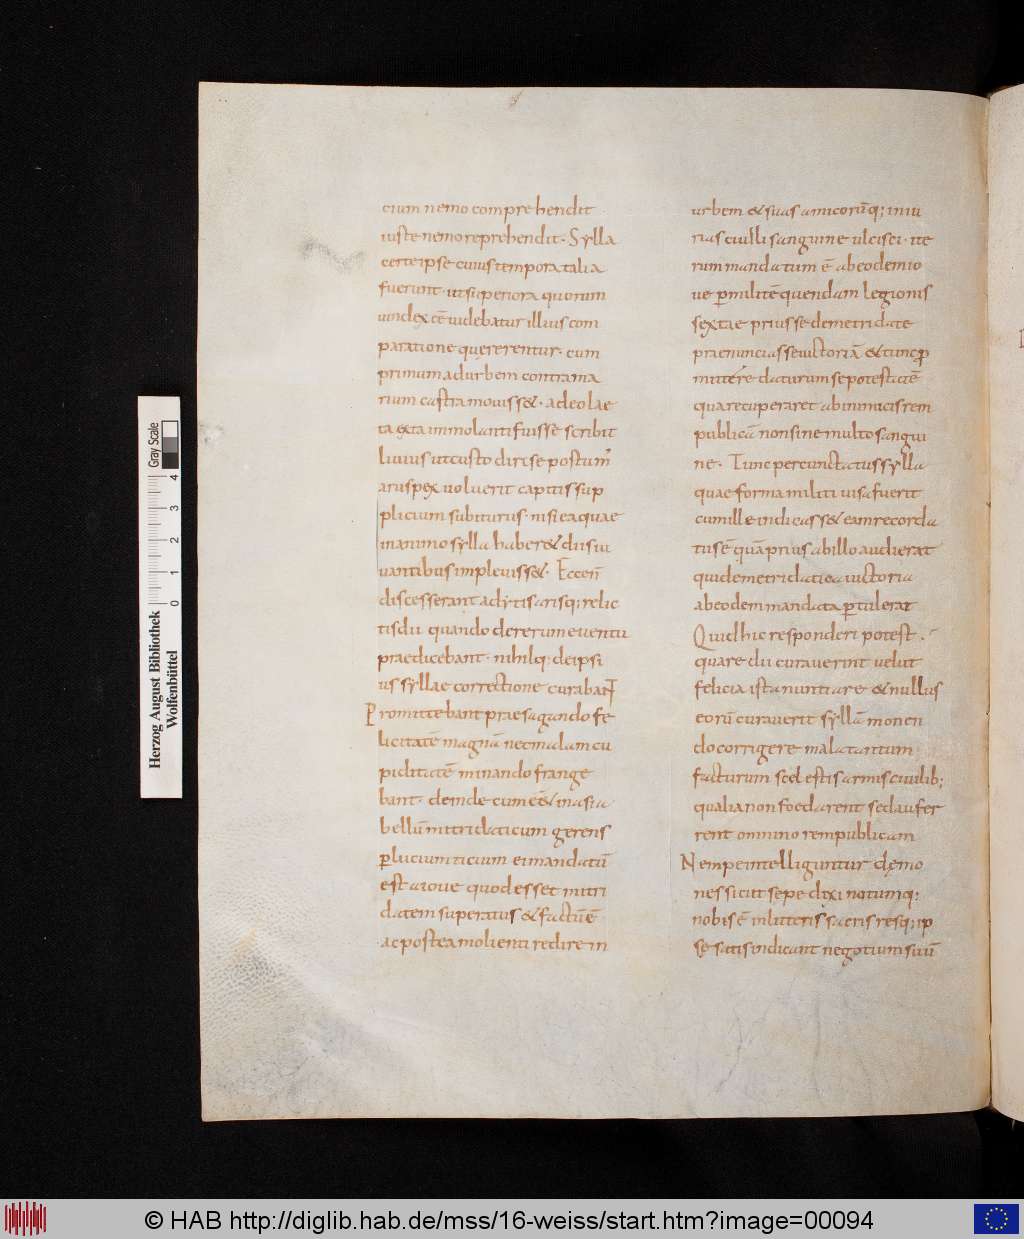 cium nemo comprehendit
iuste nemo reprehendit. Sylla
certe ipse cuius tempora talia
fuerunt. ut superiora quorum
uindex cē uidebatur illius com
paratione quererentur. cum
primum ad urbem contra ma
rium castra mouiss&. adeo lae
ta exta immolanti fuisse scribit
liuius ut custodiri se postum̄
aruspex uoluerit capitis sup
plicium subiturus. nisi ea quae
in animo sylla haber& diis iu
uantibus impleuiss&. Eccen̄
discesserant adytis arisq; relic
tis dii quando de rerum euentu
praedicebant. nihilq; de ipsi
us syllae correctione curabant
Promittebant praesagando fe
licitatē magnā nec malam cu
piditatē minando frange
bant. deinde cum eē& in asia
bellū mitridaticum gerens
ꝑ lucium ticium ei mandatū
est a ioue quod esset mitri
datem superatus & factū ē
ac postea molienti redire in
urbem & suas amicorūq; iniu
rias ciuili sanguine ulcisci. ite
rum mandatum ē ab eodem io
ue ꝑ militē quendam legionis
sextae prius se de metridate
praenunciasse uictoriā & tunc ꝓ
mittere daturum se potestatē
qua recuperaret ab inimicis rem
publicā non sine multo sangui
ne. Tunc percunctatus sylla
quae forma militi uisa fuerit
cum ille indicass& eam recorda
tus ē quā prius ab illo audierat
qui de metridatica uictoria
ab eodem mandata ꝑtulerat
Quid hic responderi potest.
quare dii curauerint uelut
felicia ista nuntiare & nullus
eorū curauerit syllā monen
do corrigere mala tantum
facturum scelestis armis ciuilib;
qualia non foedarent sed aufer
rent omnino rempublicam
Nempe intelliguntur dęmo
nes sicut sepe dixi notumq;
nobis ē in litteris sacris resq; ip
sę satis indicant negotium suū
Herzog August Bibliothek
Wolfenbüttel
0 1 2 3 4
Gray Scale
© HAB http://diglib.hab.de/mss/16-weiss/start.htm?image=00094